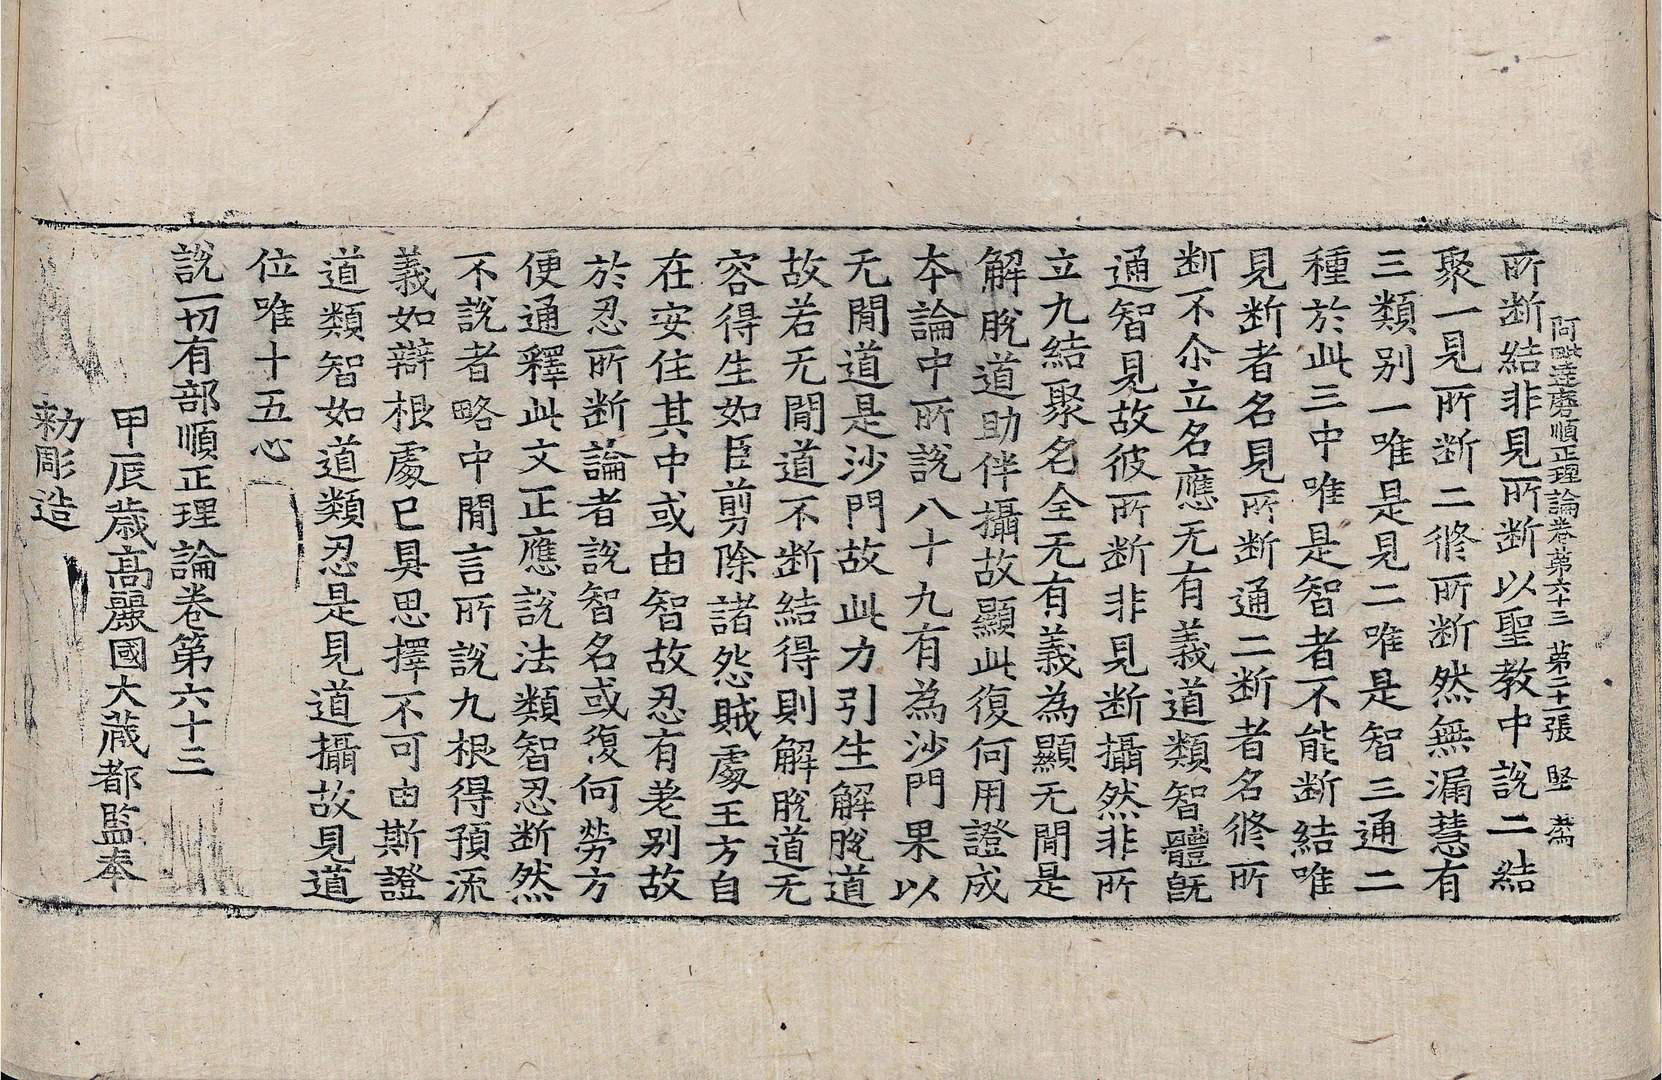 阿毗達磨順正理論卷第六十三 第二十一張 竪 爲
所断結非見所断以聖教中說二結
聚一見所断二修所断然無漏慧有
三類别一唯是見二唯是智三通二
種於此三中唯是智者不能断結唯
見断者名見所断通二断者名修所
断不尒立名應无有義道類智體旣
通智見故彼所断非見断攝然非所
立九結聚名全无有義為顯无閒是
解脫道助伴攝故顯此復何用證成
本論中所說八十九有為沙門果以
无閒道是沙門故此力引生解脫道
故若无閒道不断結得則解脫道无
容得生如臣剪除諸怨賊處王方自
在安住其中或由智故忍有差别故
於忍所断論者說智名或復何勞方
便通釋此文正應說法類智忍断然
不說者略中閒言所說九根得預流
義如辯根處已具思擇不可由斯證
道類智如道類忍是見道攝故見道
位唯十五心
說一切有部順正理論卷第六十三
甲辰歲高麗國大藏都監奉
勑彫造